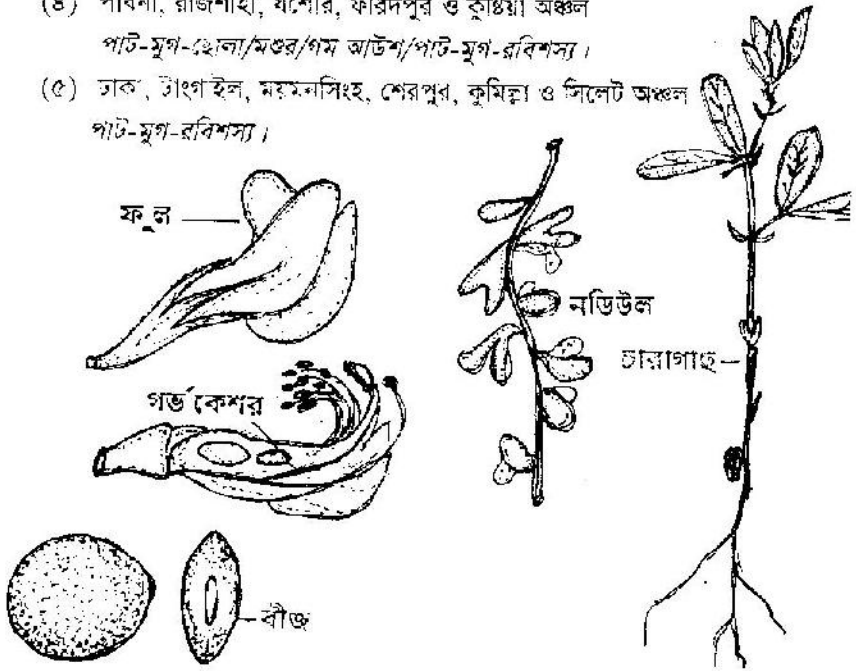 (৪) পাবনা, রাজশাহী, যশোর, ফরিদপুর ও কুষ্টিয়া অঞ্চল
পাট-মুগ-ছোলা/মশুর/গম আউশ/পাট-মুগ-রবিশস্য।
(৫) ঢাকা, টাংগাইল, ময়মনসিংহ, শেরপুর, কুমিল্লা ও সিলেট অঞ্চল
পাট-মুগ-রবিশস্য।
ফুল
নডিউল
চারাগাছ
গর্ভকেশর
বীজ